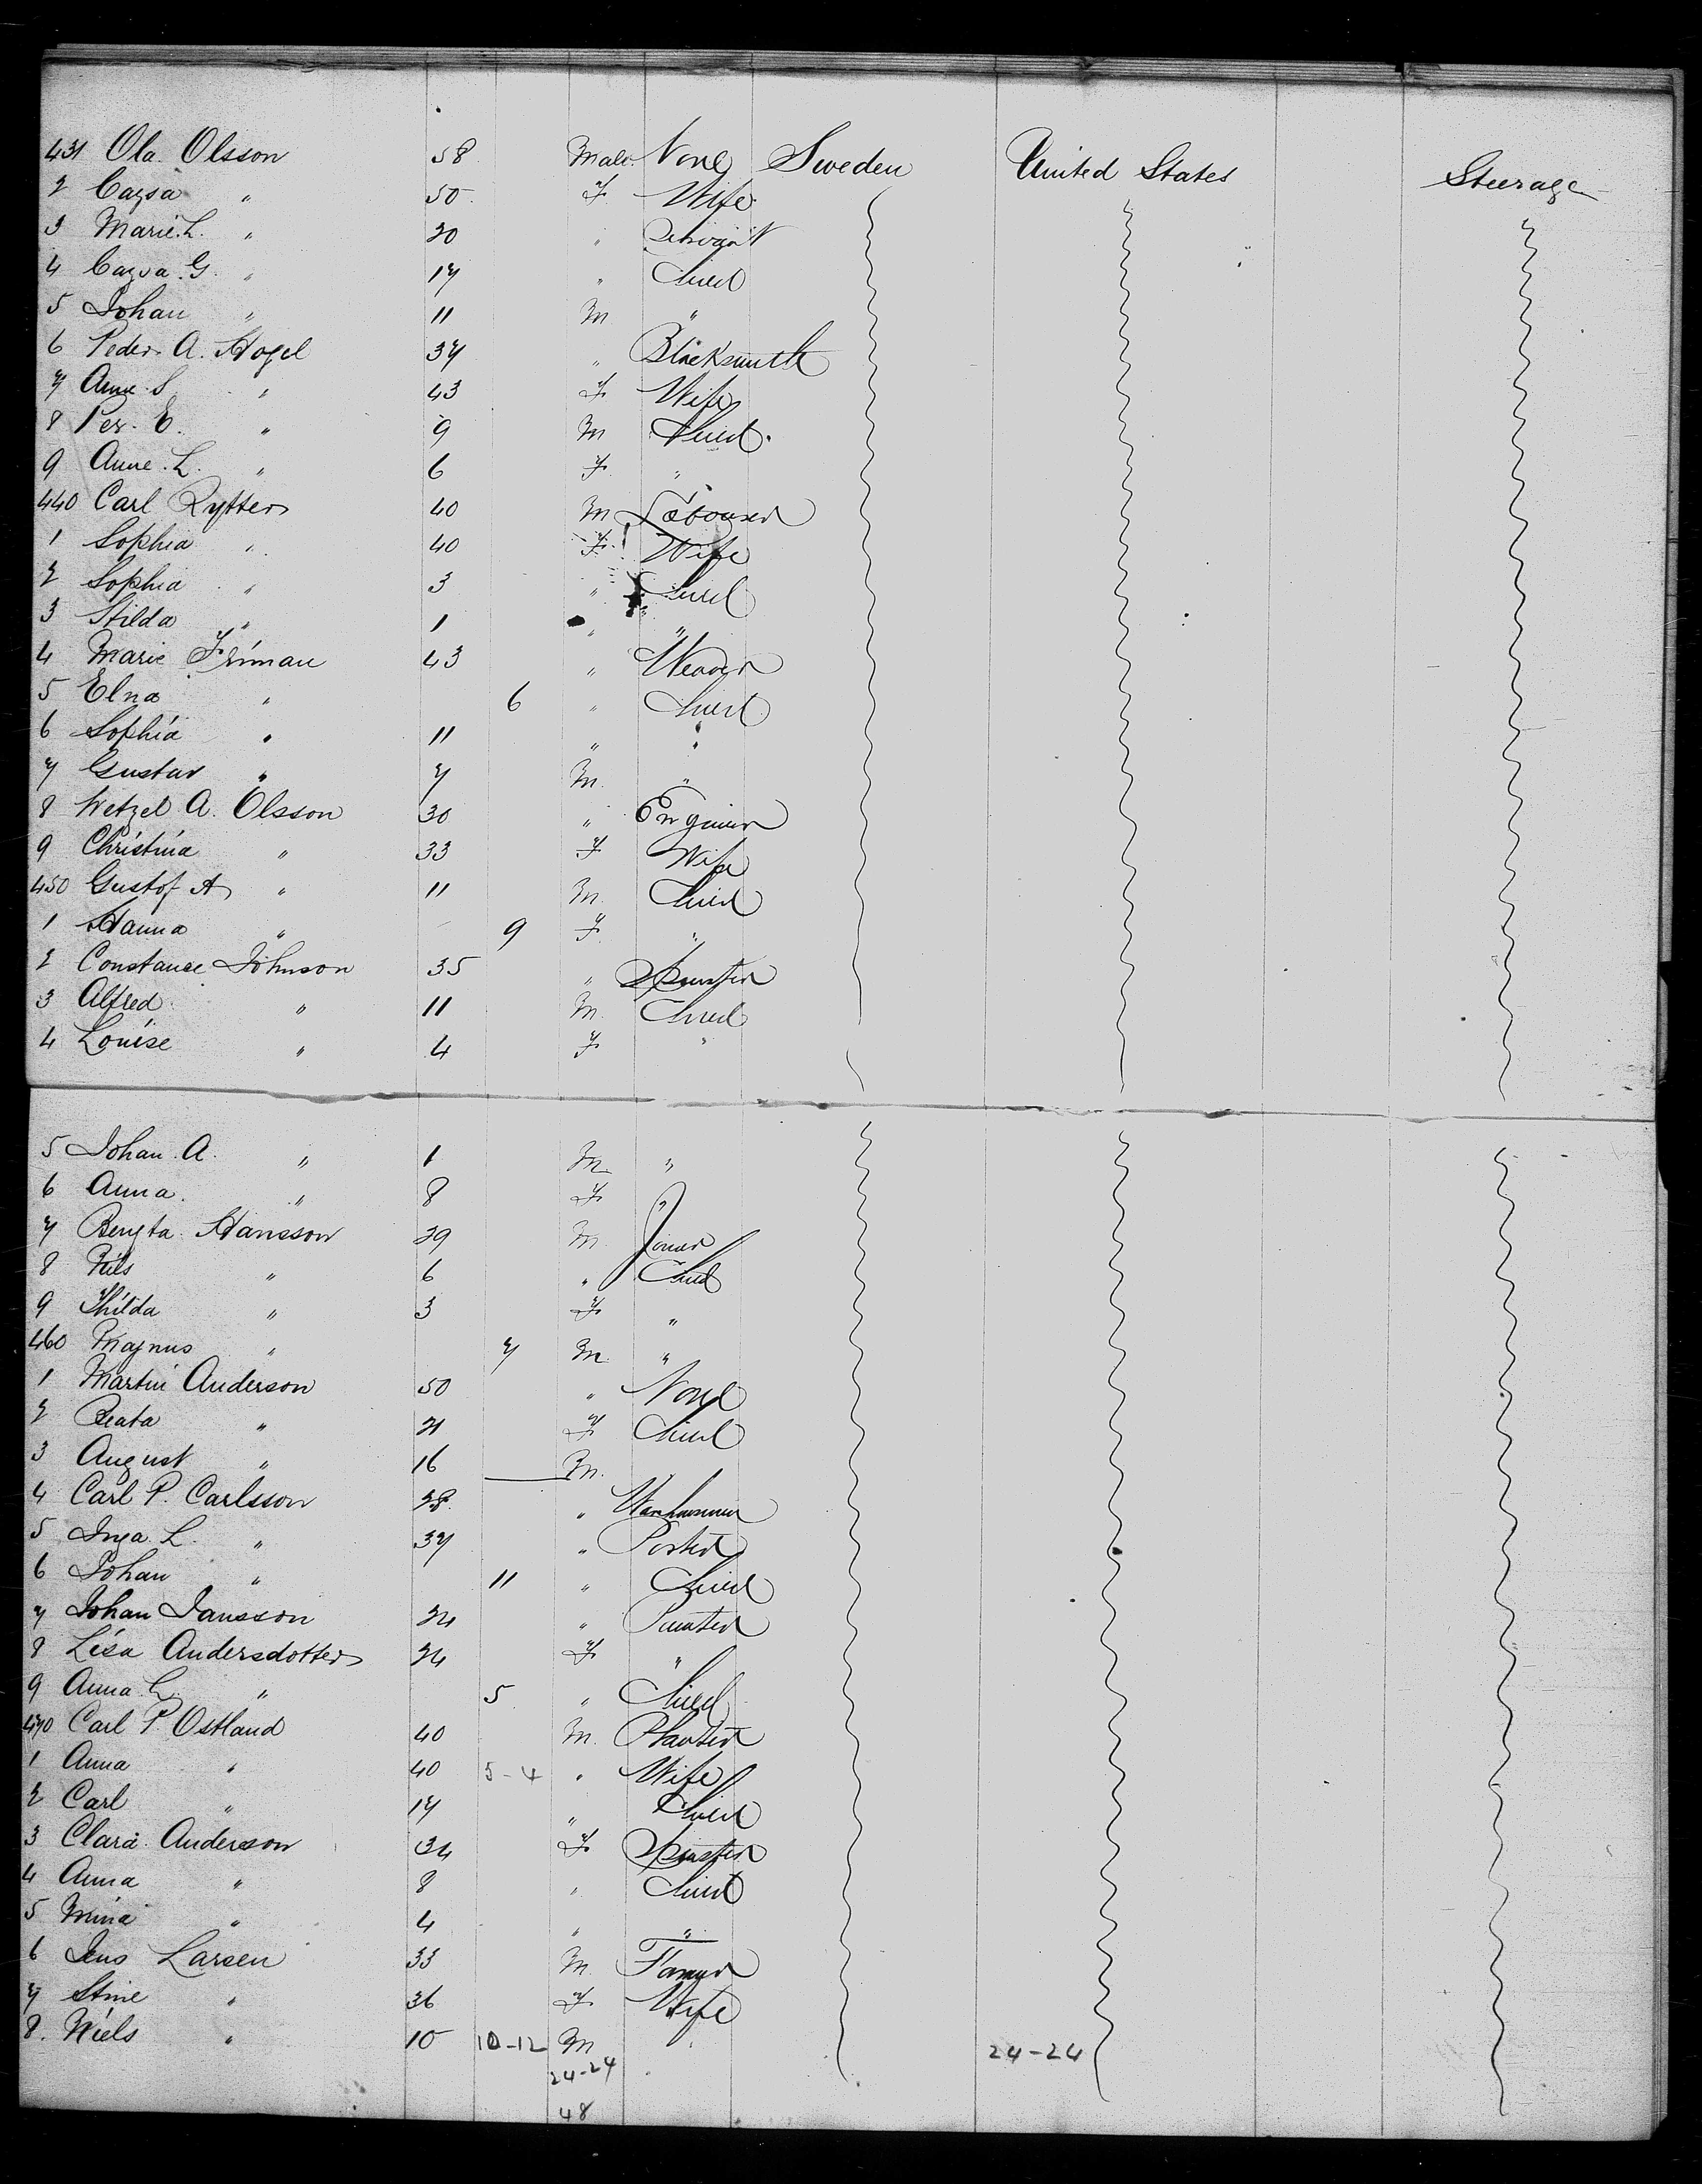 431 Ola Olsson 58 Male None Sweden United States Steerage
2 Cajsa " 50 F Wife
3 Marie L. " 20 " Servant
4 Cajsa G. " 17 " Child
5 Johan " 11 M "
6 Peder A. Hogel 37 " Blacksmith
7 Anne S. " 43 F Wife
8 Per E. " 9 M Child
9 Anne L. " 6 F "
440 Carl Rytter 40 M Labourer
1 Sophia " 40 F Wife
2 Sophia " 3 " Child
3 Hilda " 1 " "
4 Marie Friman 43 " Weaver
5 Elna " 6 " Child
6 Sophia " 11 " "
7 Gustav " 7 M. "
8 Wetzel A. Olsson 30 " Engineer
9 Christina " 33 F Wife
450 Gustof A " 11 M. Child
1 Hanna " 9 F "
2 Constance Johnson 35 " Spinster
3 Alfred " 11 M. Child
4 Louise " 4 F "
5 Johan A. " 1 M "
6 Anna " 8 F "
7 Bengta Hansson 29 M Joiner
8 Nils " 6 " Child
9 Thilda " 3 F "
460 Magnus " 7 M. "
1 Martin Anderson 50 " None
2 Beata " 21 F Child
3 August " 16 M.
4 Carl P. Carlsson 28 " Warehouseman
5 Inga L. " 37 " Porter
6 Johan " 11 " Child
7 Johan Jansson 24 "
8 Lisa Andersdotter 24 F "
9 Anna " 5 " Child
470 Carl P. Ostland 40 M. Planter
1 Anna " 40 5-4 " Wife
2 Carl " 17 " Child
3 Clara Anderson 34 F Spinster
4 Anna " 8 " Child
5 Mina " 4 " "
6 Jens Larsen 33 M. Farmer
7 Stine " 36 F Wife
8. Niels " 10 10-12 M " 24-24
24-24
48